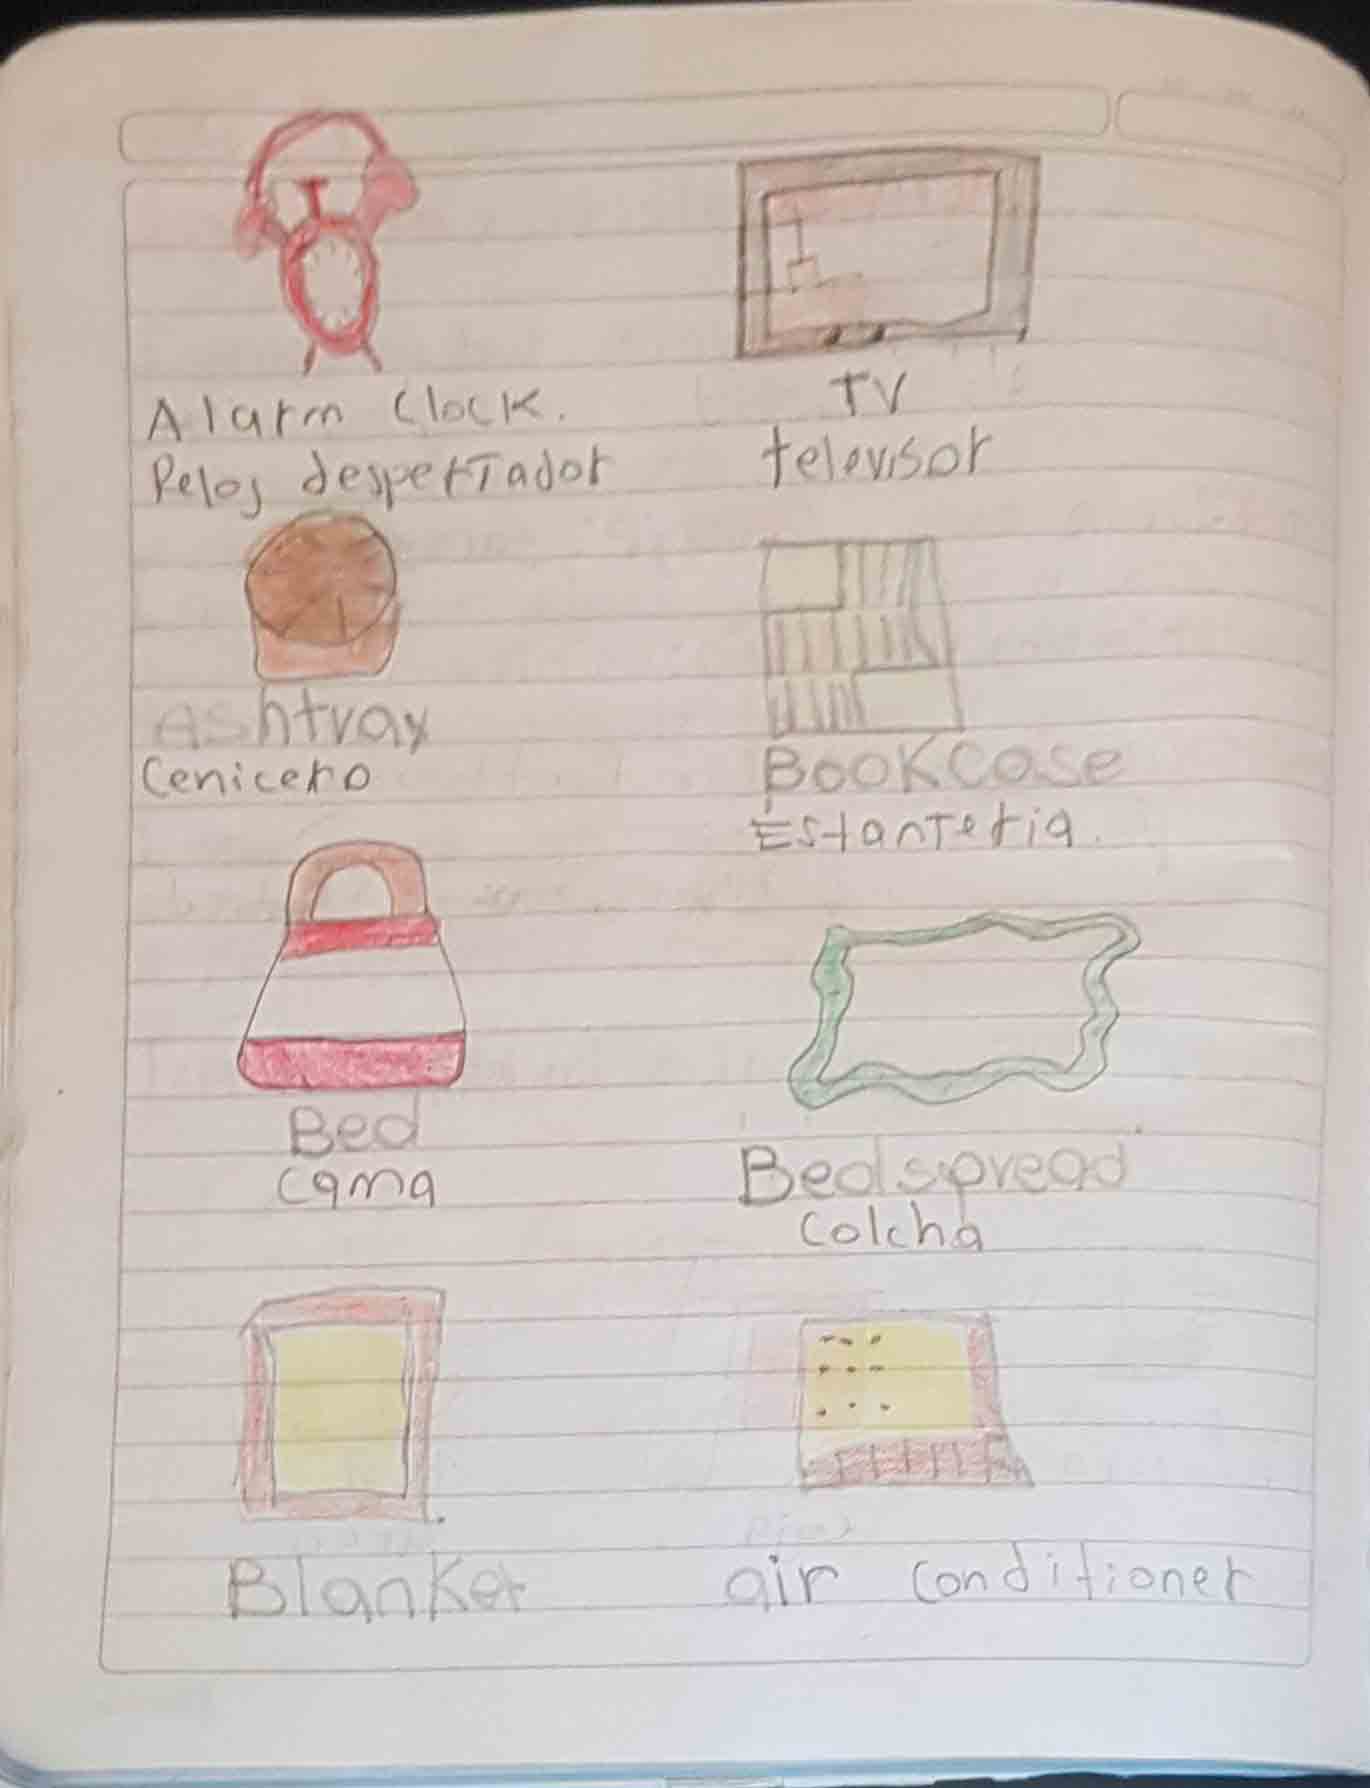 Alarm Clock.
Reloj despertador
TV
televisor
Ashtray
Cenicero
BookCase
Estanteria.
Bed
cama
Bedspread
Colcha
Blanket
air conditioner